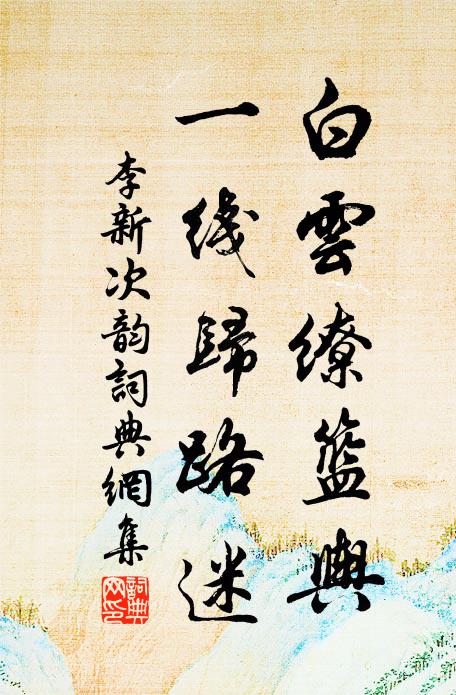 白雲繚籃輿
一线歸路迷
李新次韵詞典網集
詞典网印